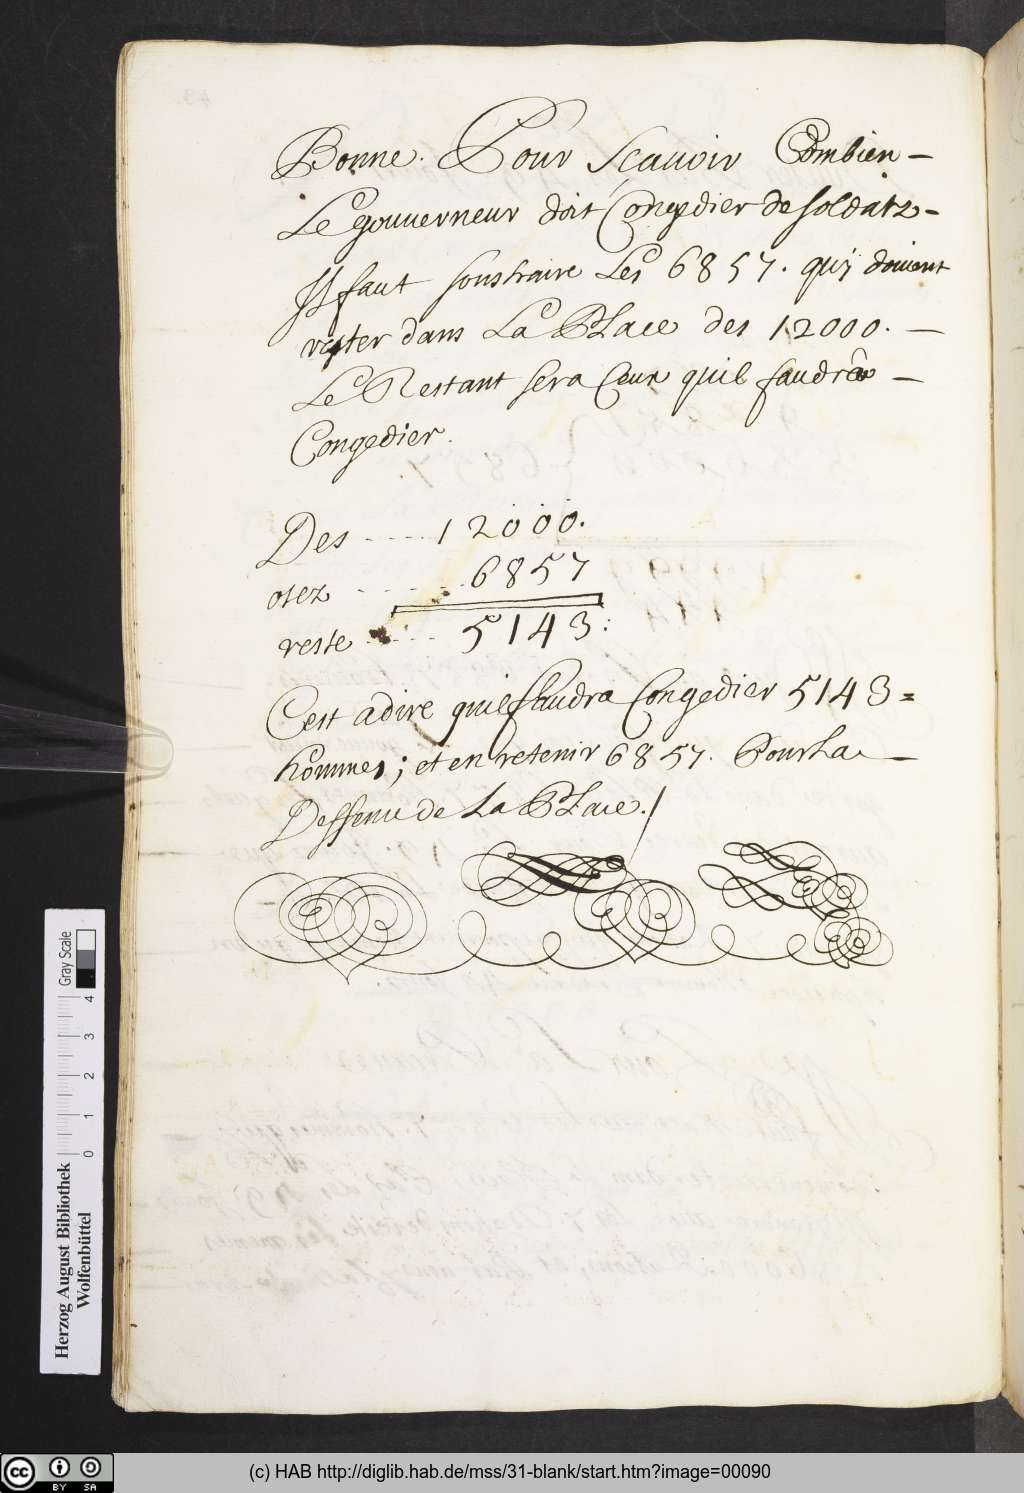 Bonne. Pour scauoir Combien -
Le gouuerneur doit Congedier de soldatz -
Il faut soustraire Les 6857. quÿ doiuent
rester dans La PLace des 12000. -
Le Restant sera Ceux quil faudra -
Congedier.
Des ..... 12000.
otez ...... 6857
reste ..... 5143:
Cest adire quil faudra Congedier 5143 =
hommes; et en retenir 6857. Pour La -
Deffence de La PLace./
Gray Scale
0 1 2 3 4
Herzog August Bibliothek
Wolfenbüttel
cc BY SA
(c) HAB http://diglib.hab.de/mss/31-blank/start.htm?image=00090